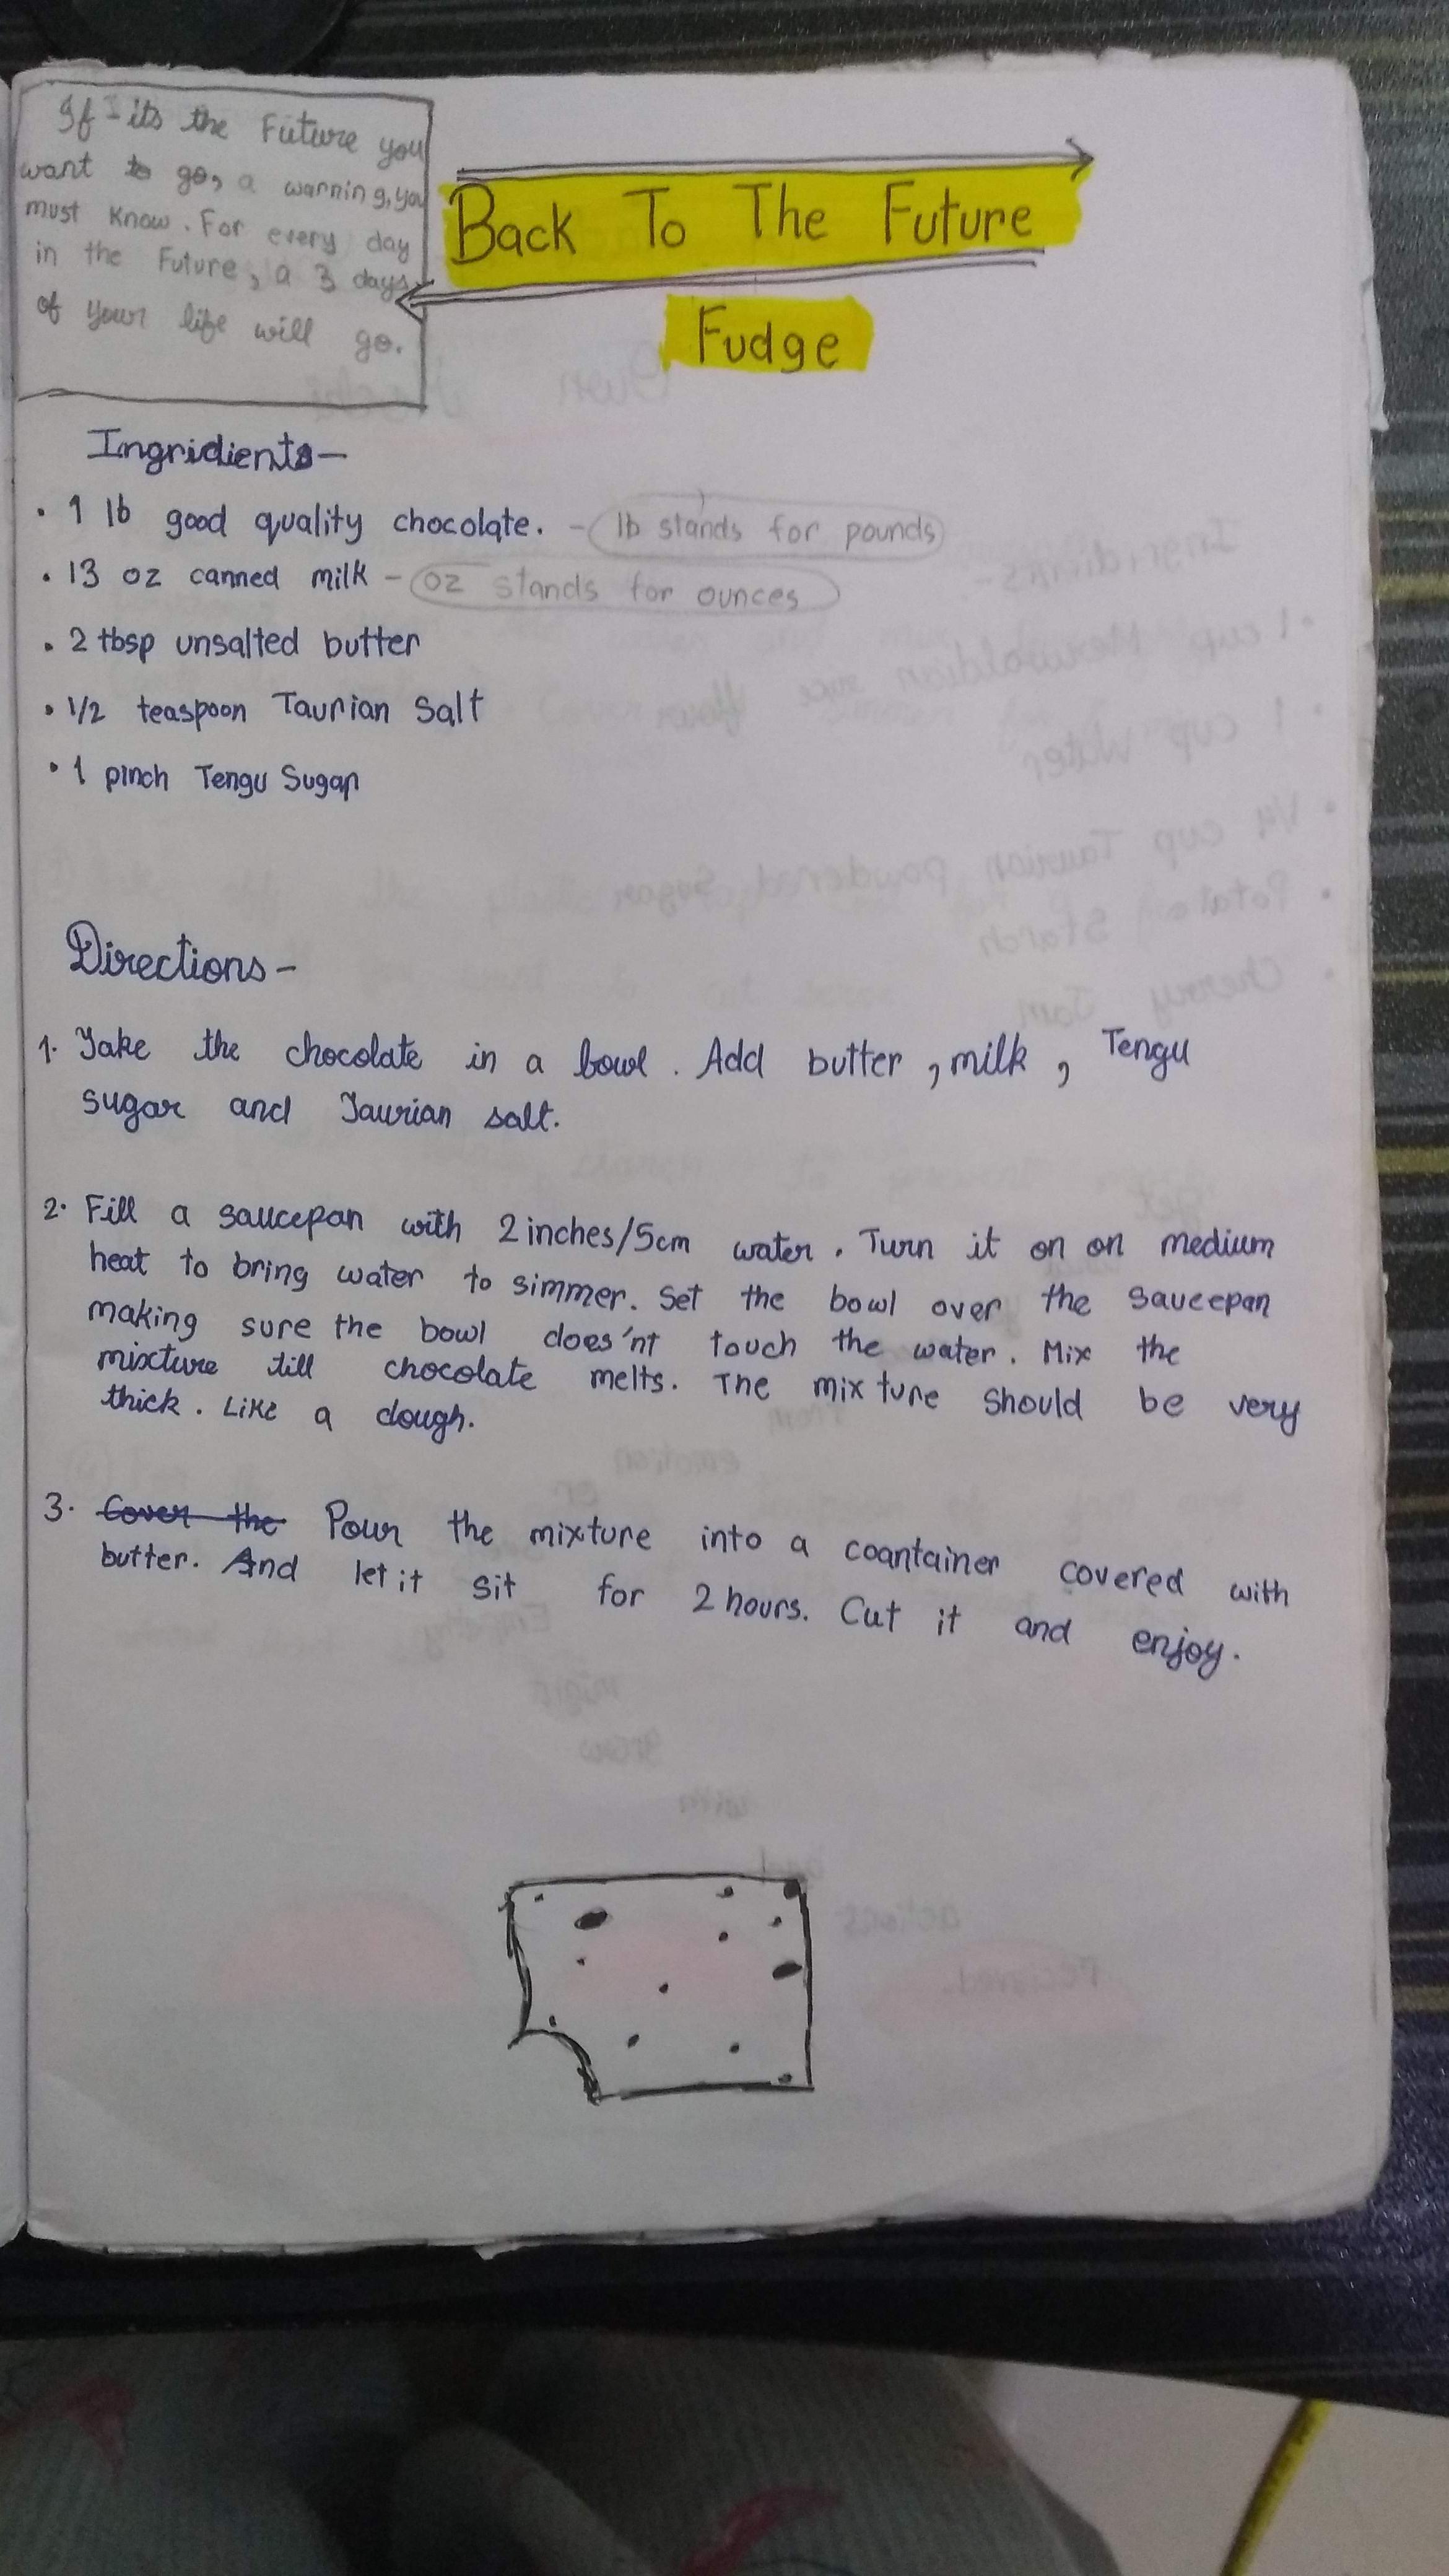 If its the Future you
want to go, a warning, you
must know. For every day
in the Future, a 3 days
of your life will go.
Back To The Future
Fudge
Ingridients-
• 1 lb good quality chocolate. - lb stands for pounds
• 13 oz canned milk - oz stands for ounces
• 2 tbsp unsalted butter
• 1/2 teaspoon Taurian Salt
• 1 pinch Tengu Sugar
Directions -
1. Take the chocolate in a bowl. Add butter, milk, Tengu
sugar and Taurian salt.
2. Fill a saucepan with 2 inches/5cm water. Turn it on on medium
heat to bring water to simmer. Set the bowl over the saucepan
making sure the bowl does'nt touch the water. Mix the
mixture till chocolate melts. The mixture should be very
thick. Like a dough.
3. Cover the Pour the mixture into a coantainer covered with
butter. And let it sit for 2 hours. Cut it and enjoy.